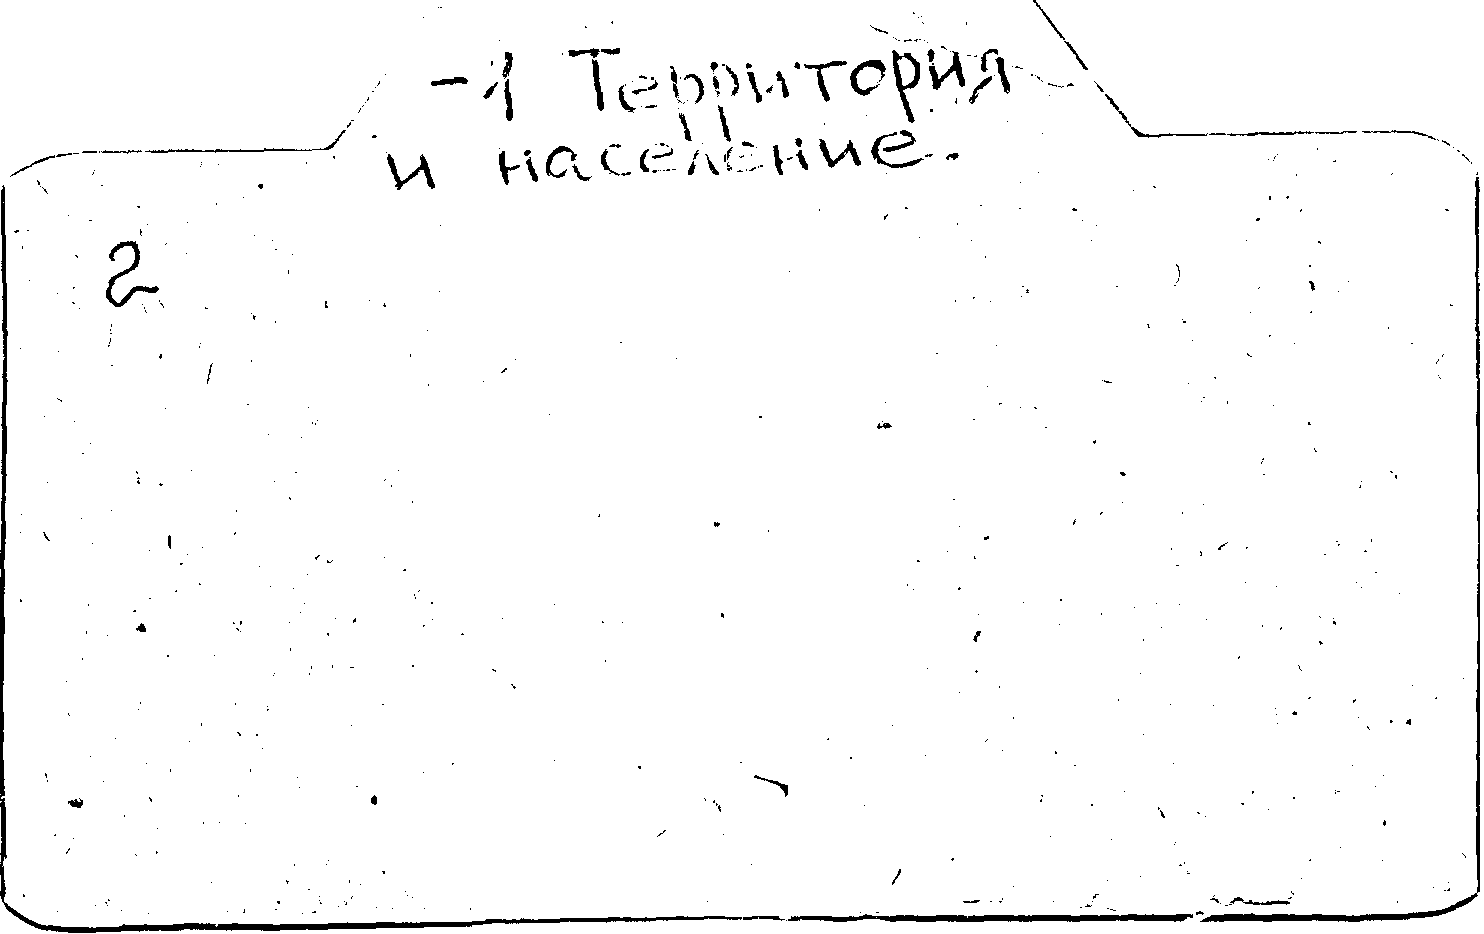 -1 Территория
и население.
2